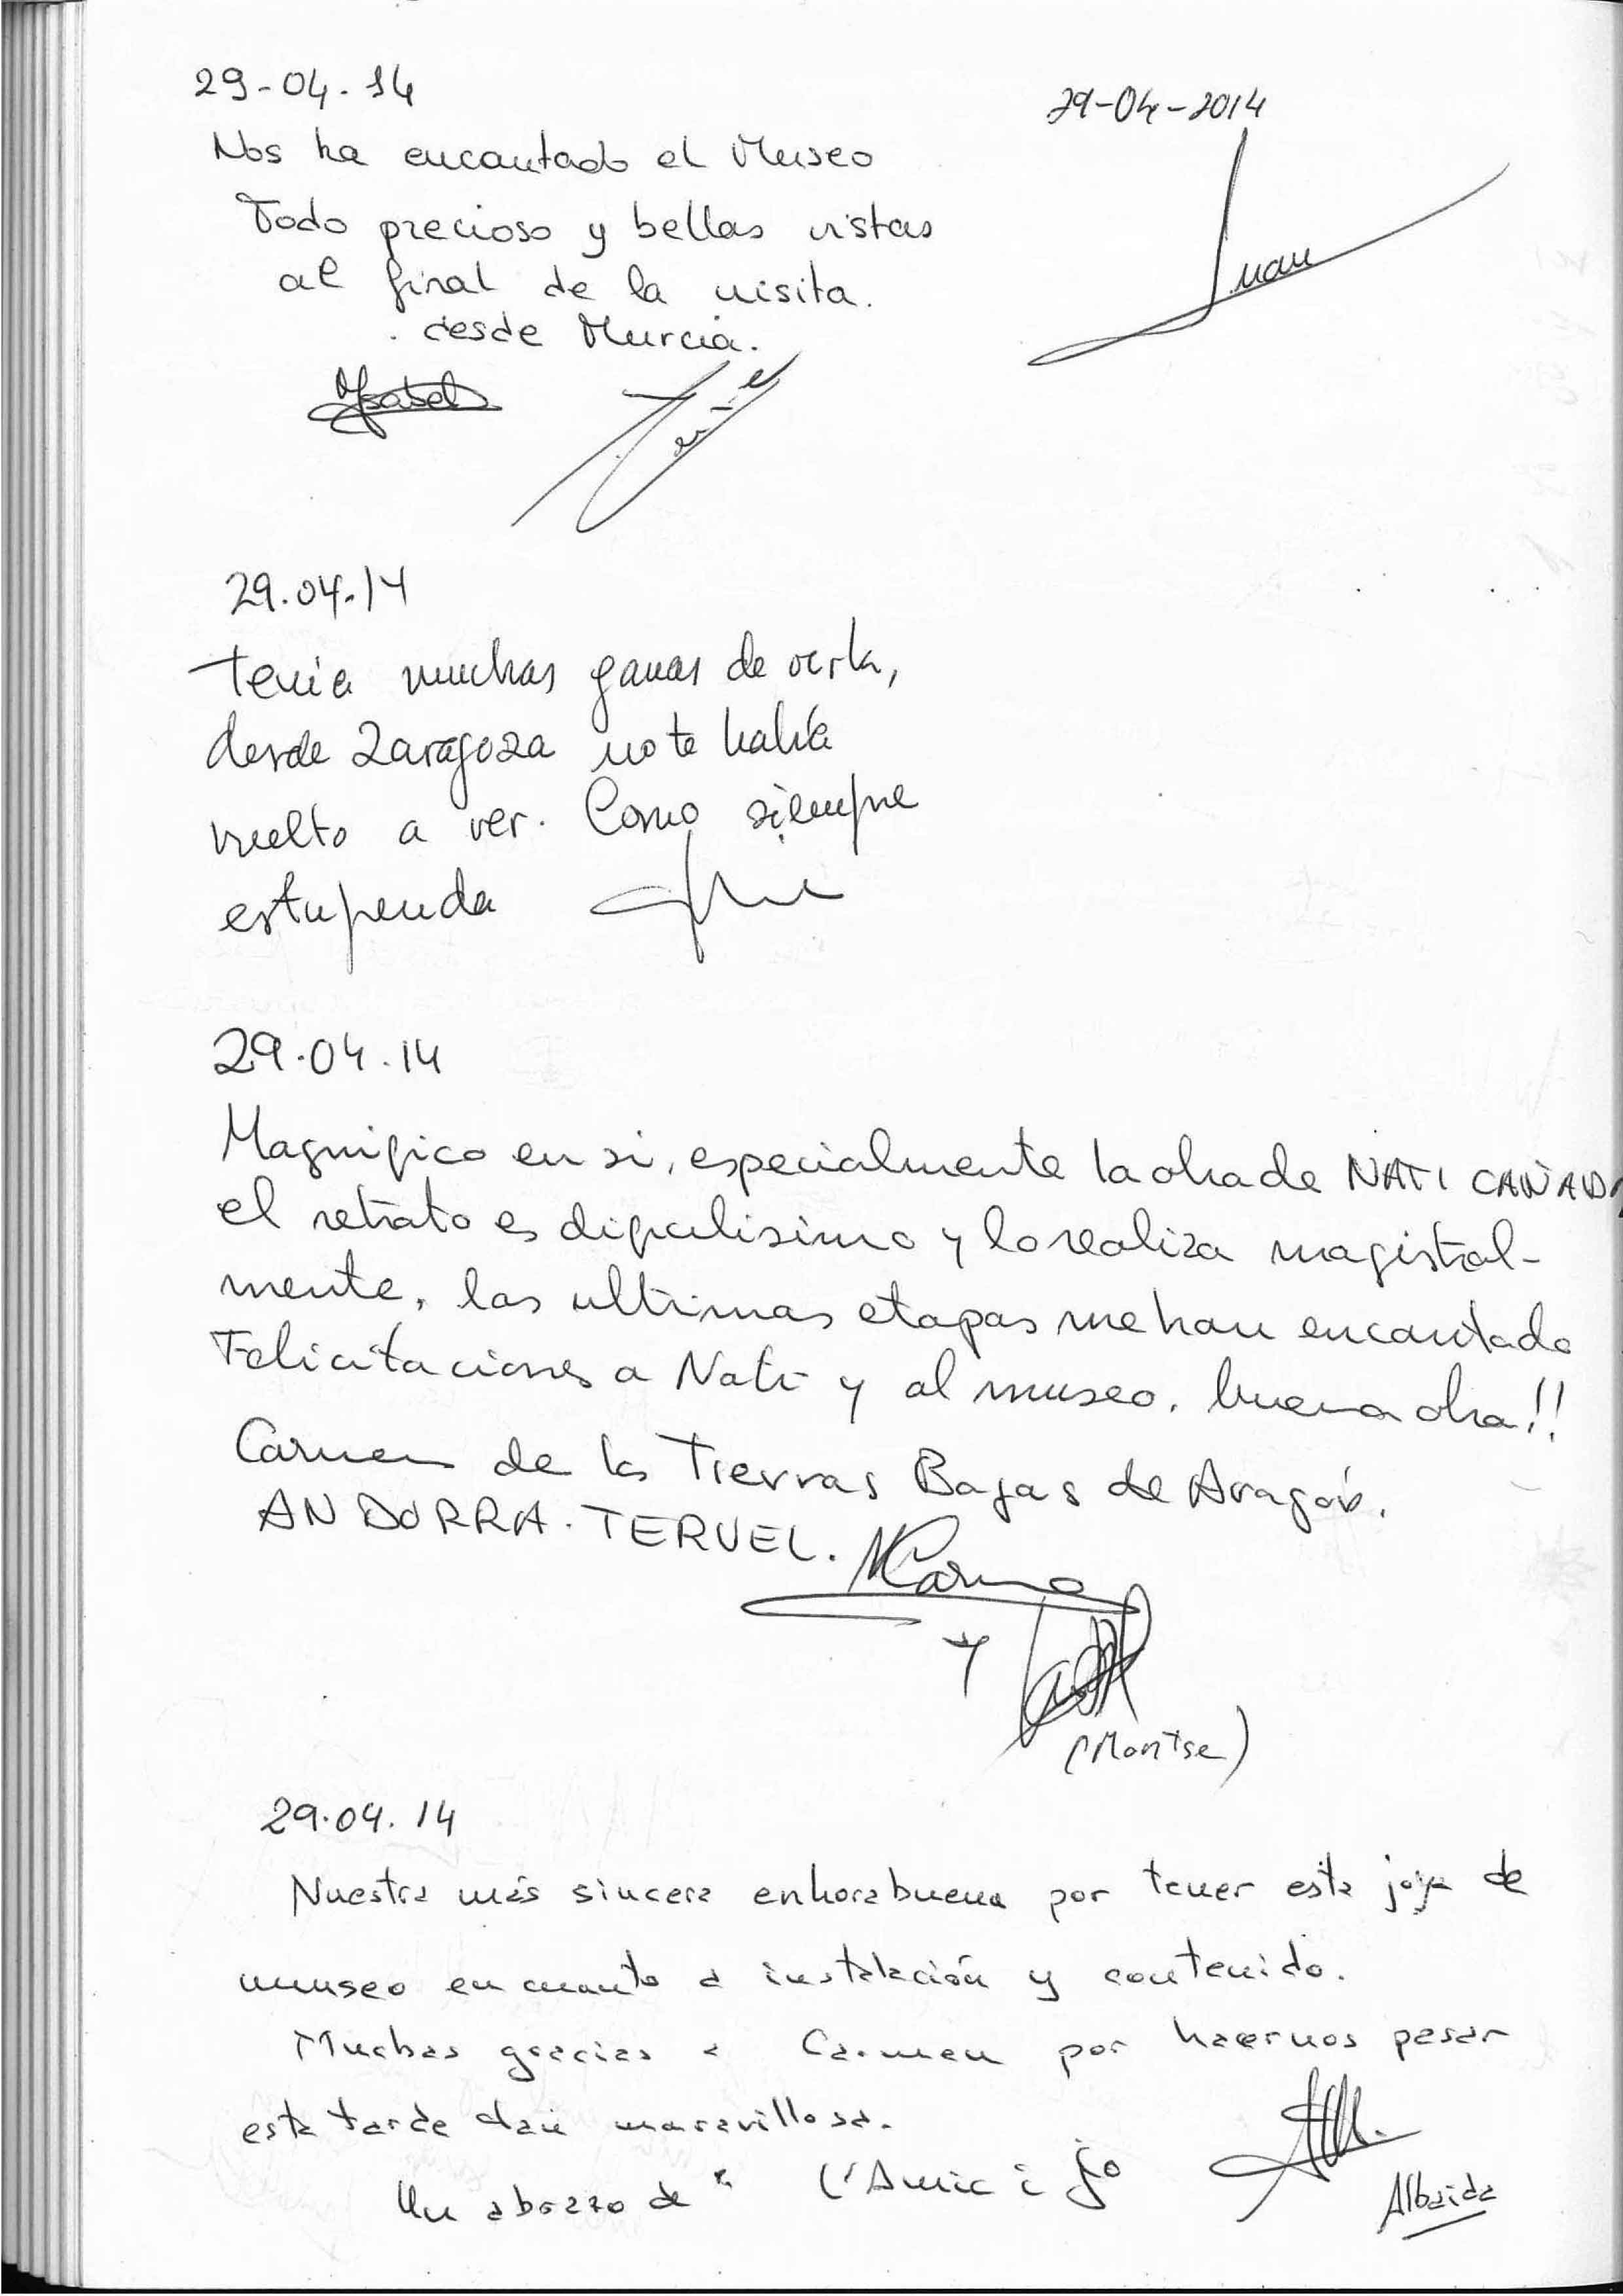 29-04-14
Nos ha encantado el Museo
Todo precioso y bellas vistas
al final de la visita.
. desde Murcia.
Ysabel
29-04-2014
Juan
29.04.14
Tenia muchas ganas de verla,
desde Zaragoza no te había
vuelto a ver. Como siempre
estupenda
29.04.14
Magnifico en si, especialmente la obra de NATI CAÑADA
el retrato es dificilisimo y lo realiza magistral-
mente, las ultimas etapas me han encantado
Felicitaciones a Nati y al museo, buena obra!!
Carmen de las Tierras Bajas de Aragón.
ANDORRA. TERUEL.
MCarmen
y
(Montse)
29.04.14
Nuestra más sincera enhorabuena por tener esta joya de
museo en cuanto a instalación y contenido.
Muchas gracias a Carmen por hacernos pasar
esta tarde tan maravillosa.
Un abrazo de " L'Amic i jo
Albaida